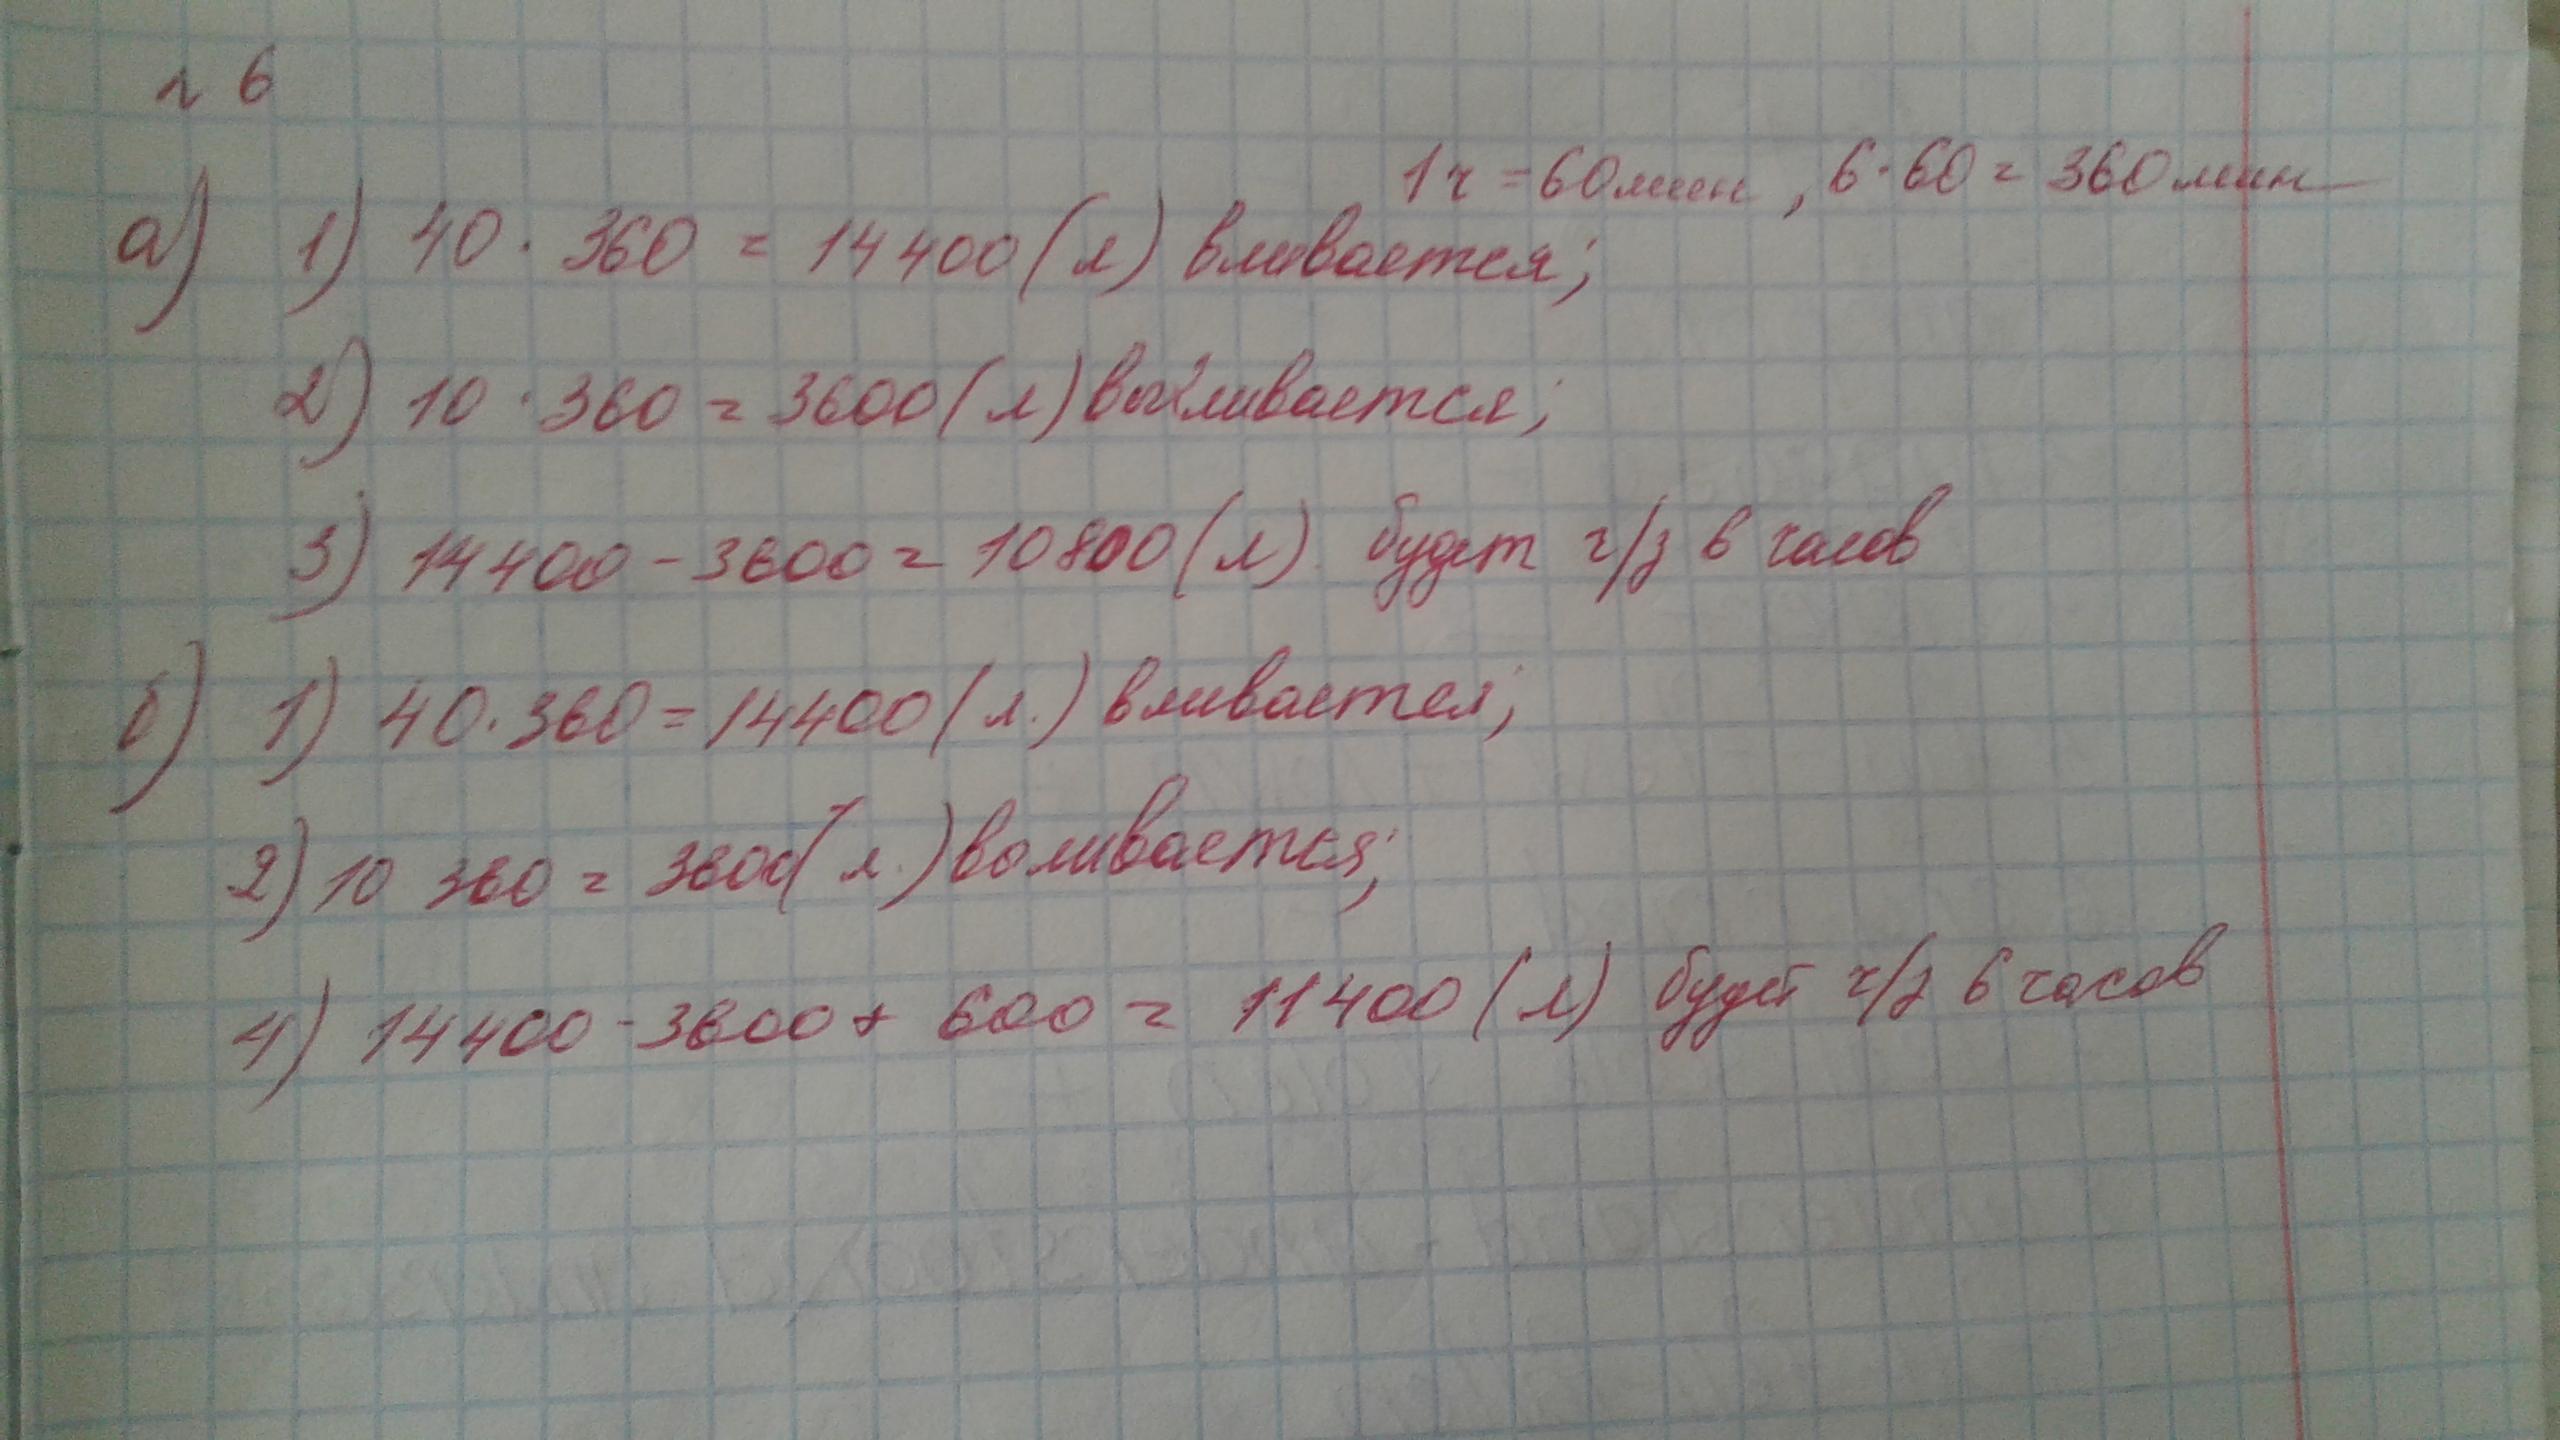 № 6
1ч = 60мин, 6·60 = 360мин
а) 1) 40 · 360 = 14400(л) вливается;
2) 10 · 360 = 3600(л) выливается;
3) 14400 - 3600 = 10800(л) будет ч/з 6 часов
б) 1) 40·360 = 14400(л.) вливается;
2) 10 360 = 3600(л.) выливается;
4) 14400 - 3600 + 600 = 11400(л) будет ч/з 6 часов